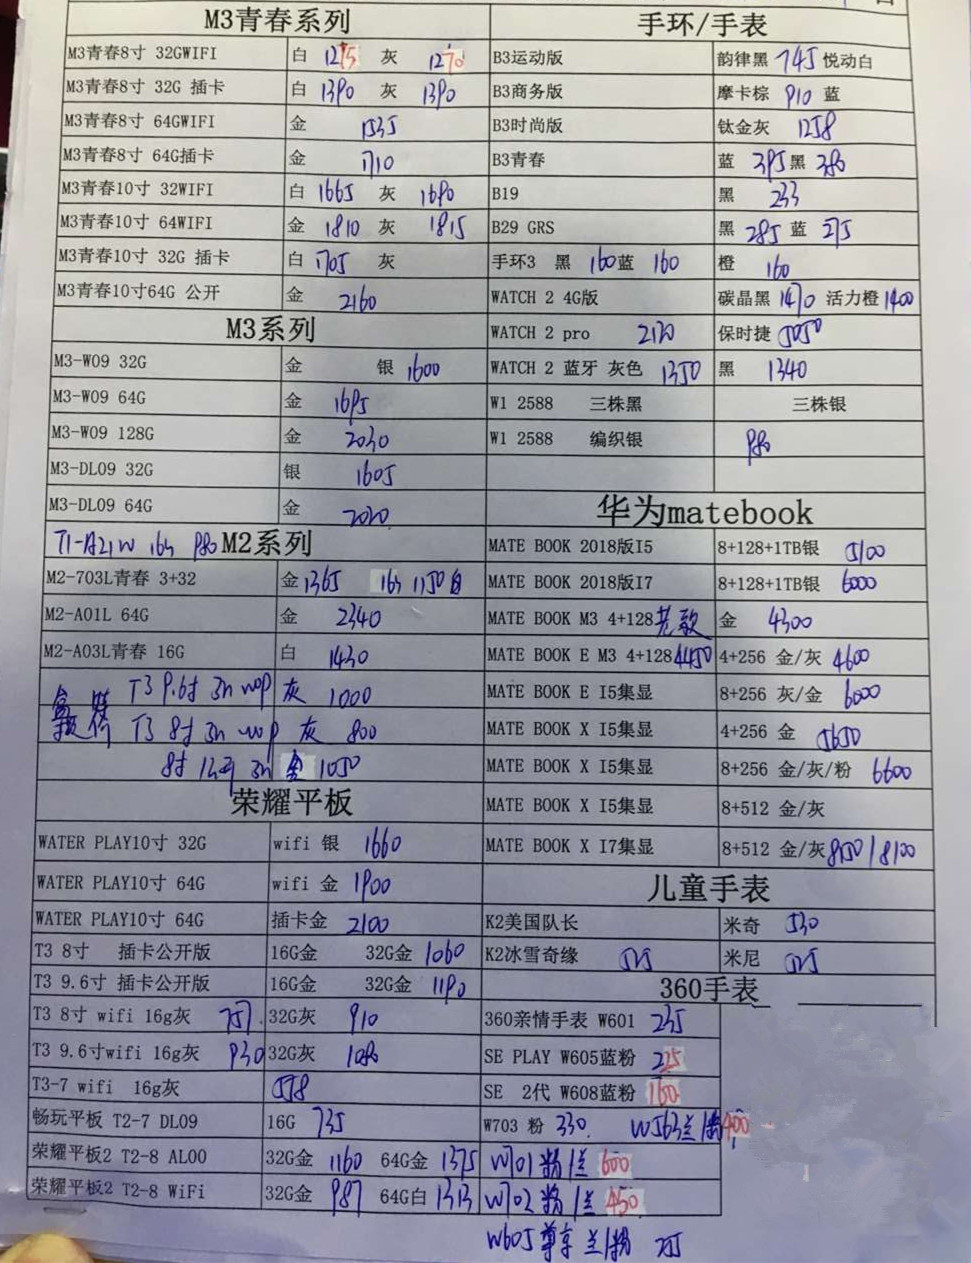 M3青春系列
M3青春8寸 32GWIFI 白 1275 灰 1270
M3青春8寸 32G 插卡 白 1390 灰 1390
M3青春8寸 64GWIFI 金 1535
M3青春8寸 64G插卡 金 1710
M3青春10寸 32WIFI 白 1665 灰 1690
M3青春10寸 64WIFI 金 1810 灰 1815
M3青春10寸 32G 插卡 白 1705 灰
M3青春10寸64G 公开 金 2160
M3系列
M3-W09 32G 金 银 1600
M3-W09 64G 金 1695
M3-W09 128G 金 2030
M3-DL09 32G 银 1605
M3-DL09 64G 金 2020
T1-A21W 16G 980 M2系列
M2-703L青春 3+32 金 1365 16G 1150 白
M2-A01L 64G 金 2340
M2-A03L青春 16G 白 1430
T3 9.6寸 灰 1000
T3 8寸 灰 800
8寸 金 1050
荣耀平板
WATER PLAY10寸 32G wifi 银 1660
WATER PLAY10寸 64G wifi 金 1900
WATER PLAY10寸 64G 插卡金 2100
T3 8寸 插卡公开版 16G金 32G金 1060
T3 9.6寸 插卡公开版 16G金 32G金 1190
T3 8寸 wifi 16g灰 757 32G灰 910
T3 9.6寸wifi 16g灰 930 32G灰 1080
T3-7 wifi 16g灰 558
畅玩平板 T2-7 DL09 16G 735
荣耀平板2 T2-8 AL00 32G金 1160 64G金 1375
荣耀平板2 T2-8 WiFi 32G金 987 64G白 1313
手环/手表
B3运动版 韵律黑 745 悦动白
B3商务版 摩卡棕 910 蓝
B3时尚版 钛金灰 1258
B3青春 蓝 395 黑 380
B19 黑 233
B29 GRS 黑 285 蓝 275
手环3 黑 160 蓝 160 橙 160
WATCH 2 4G版 碳晶黑 1470 活力橙 1400
WATCH 2 pro 2120 保时捷 5050
WATCH 2 蓝牙 灰色 1350 黑 1340
W1 2588 三株黑 三株银
W1 2588 编织银 980
华为matebook
MATE BOOK 2018版I5 8+128+1TB银 5100
MATE BOOK 2018版I7 8+128+1TB银 6000
MATE BOOK M3 4+128 老款 金 4300
MATE BOOK E M3 4+128 4450 4+256 金/灰 4600
MATE BOOK E I5集显 8+256 灰/金 6000
MATE BOOK X I5集显 4+256 金 5650
MATE BOOK X I5集显 8+256 金/灰/粉 6600
MATE BOOK X I5集显 8+512 金/灰
MATE BOOK X I7集显 8+512 金/灰 8150/8100
儿童手表
K2美国队长 米奇 530
K2冰雪奇缘 525 米尼 525
360手表
360亲情手表 W601 235
SE PLAY W605蓝粉 225
SE 2代 W608蓝粉 160
W703 粉 330 W563兰/粉 400
W701 粉/兰 600
W702 粉/兰 450
W605 尊享 兰/粉 275